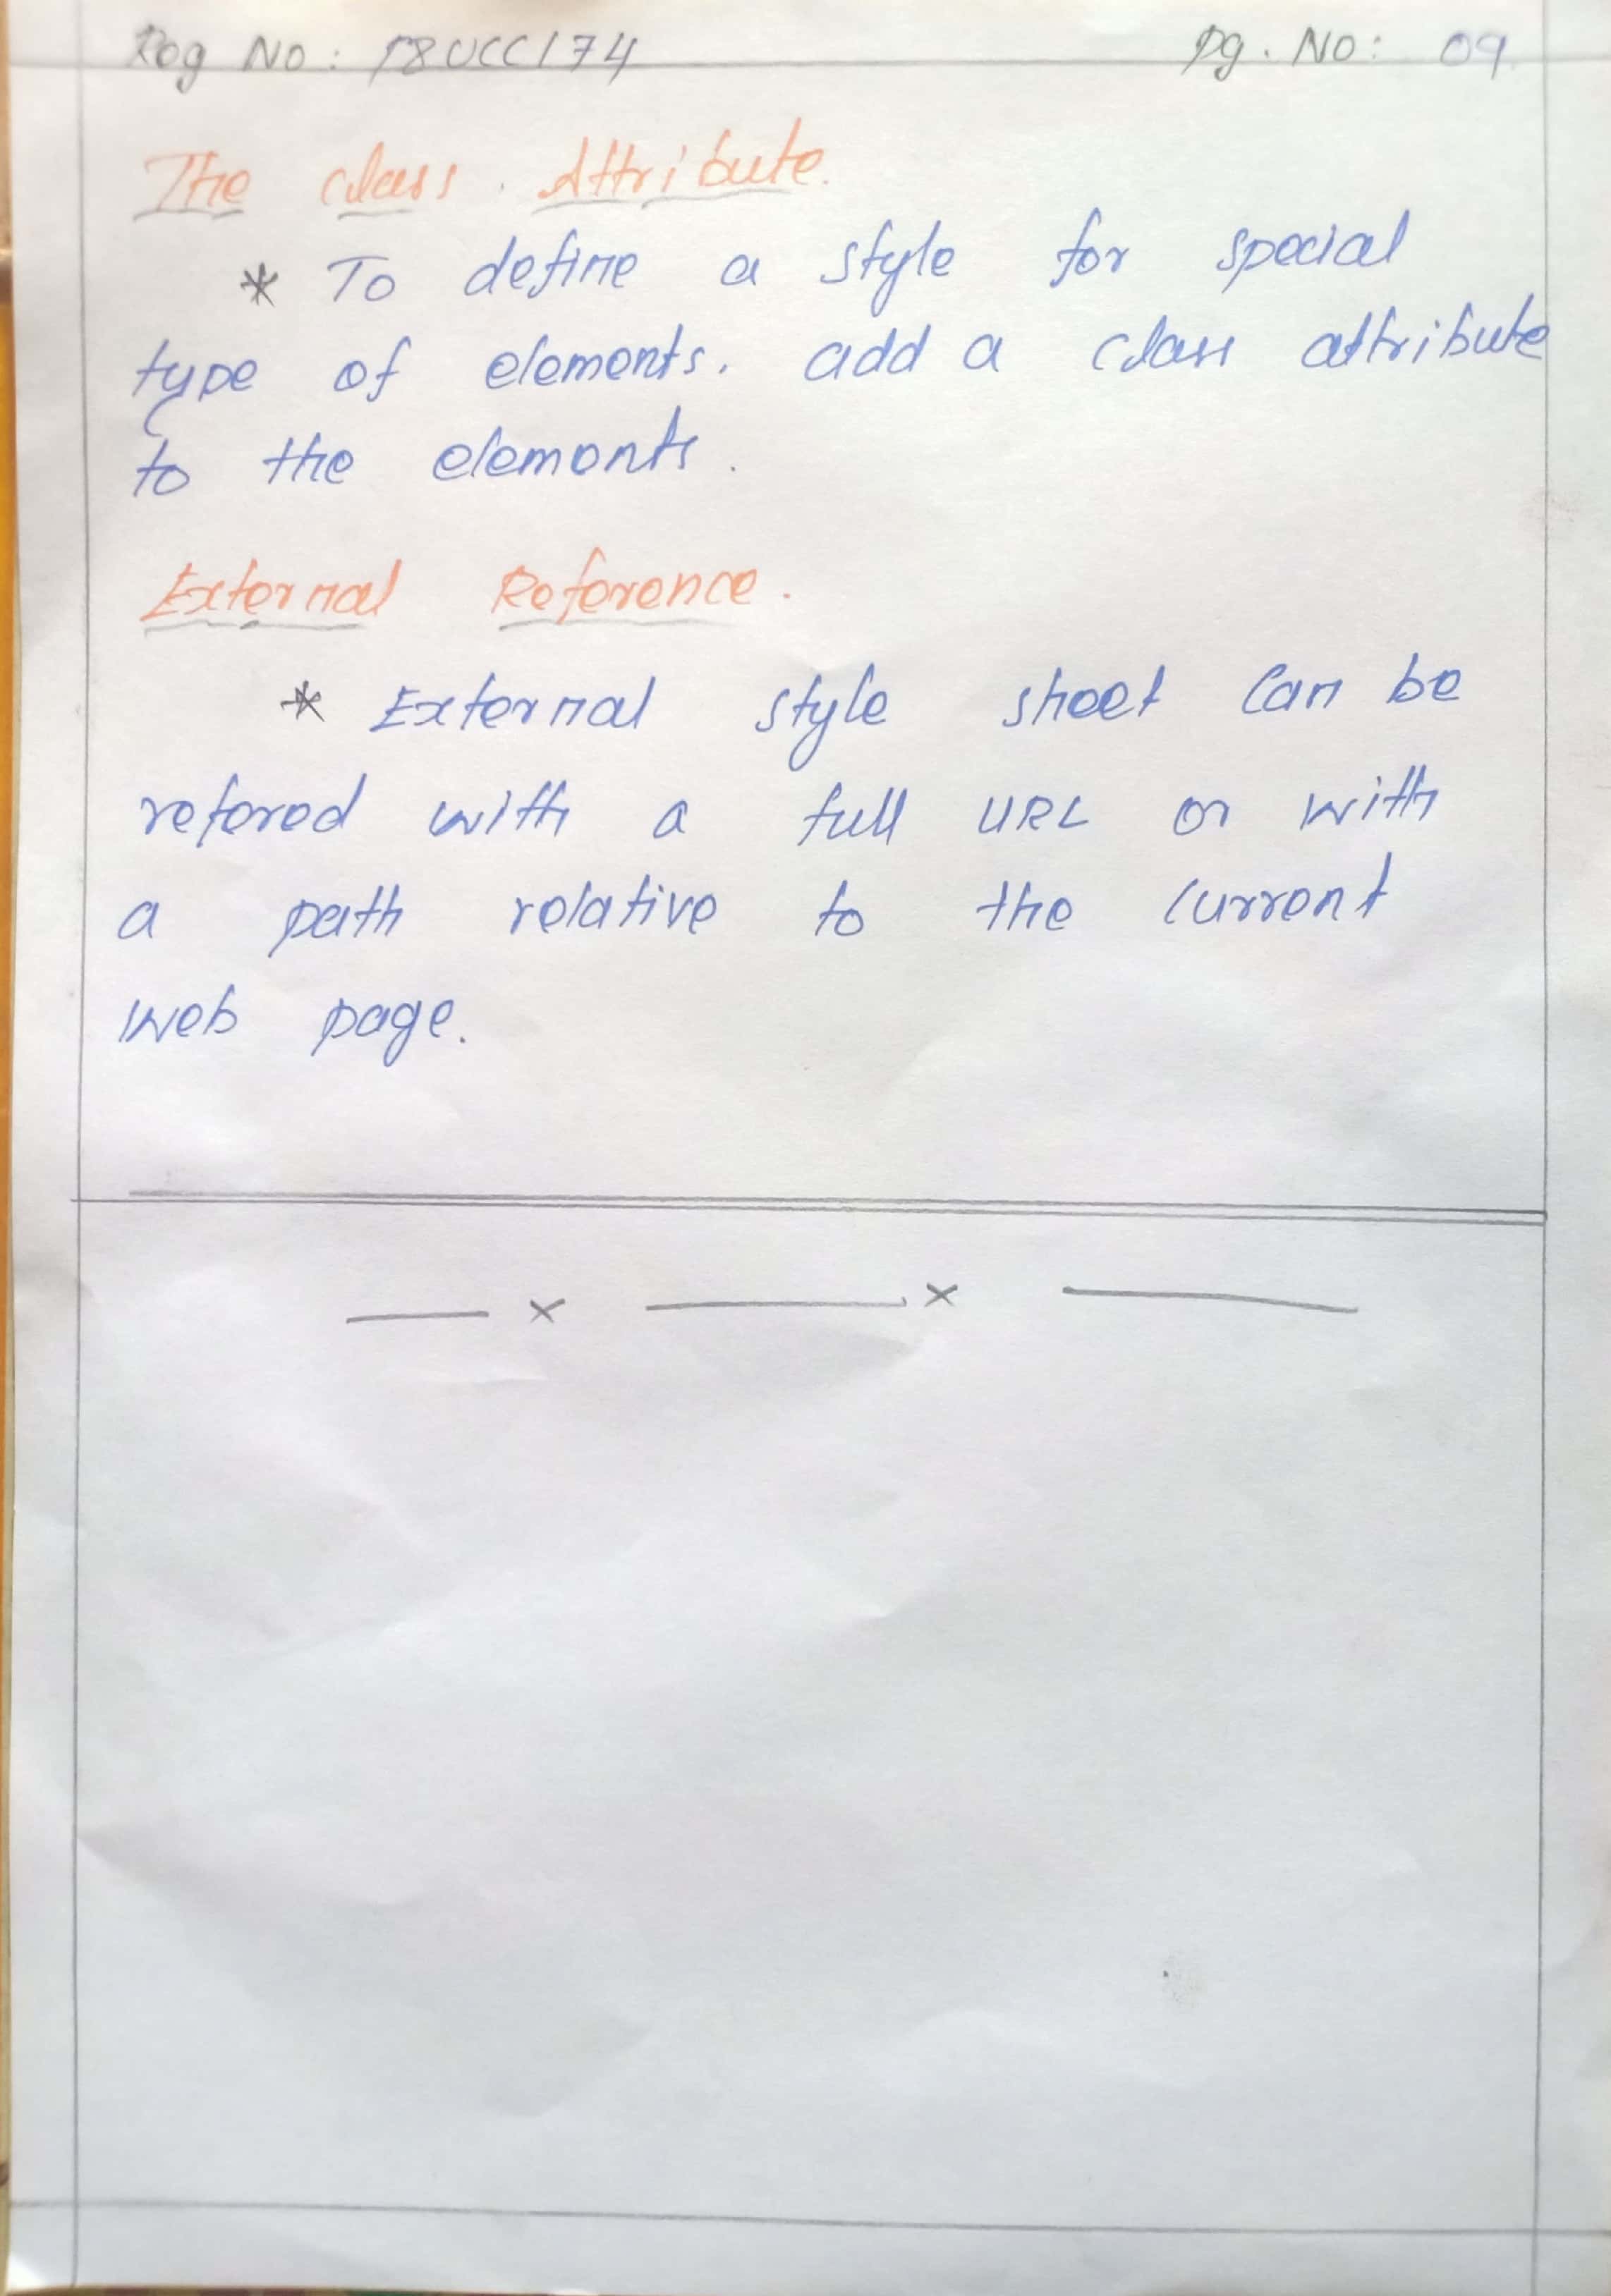 Reg No: 18UCC174
Pg. No: 09
The class Attribute.
* To define a style for special
type of elements. add a class attribute
to the elements.
External Reference.
* External style sheet can be
refered with a full URL or with
a path relative to the current
web page.
— x — x —